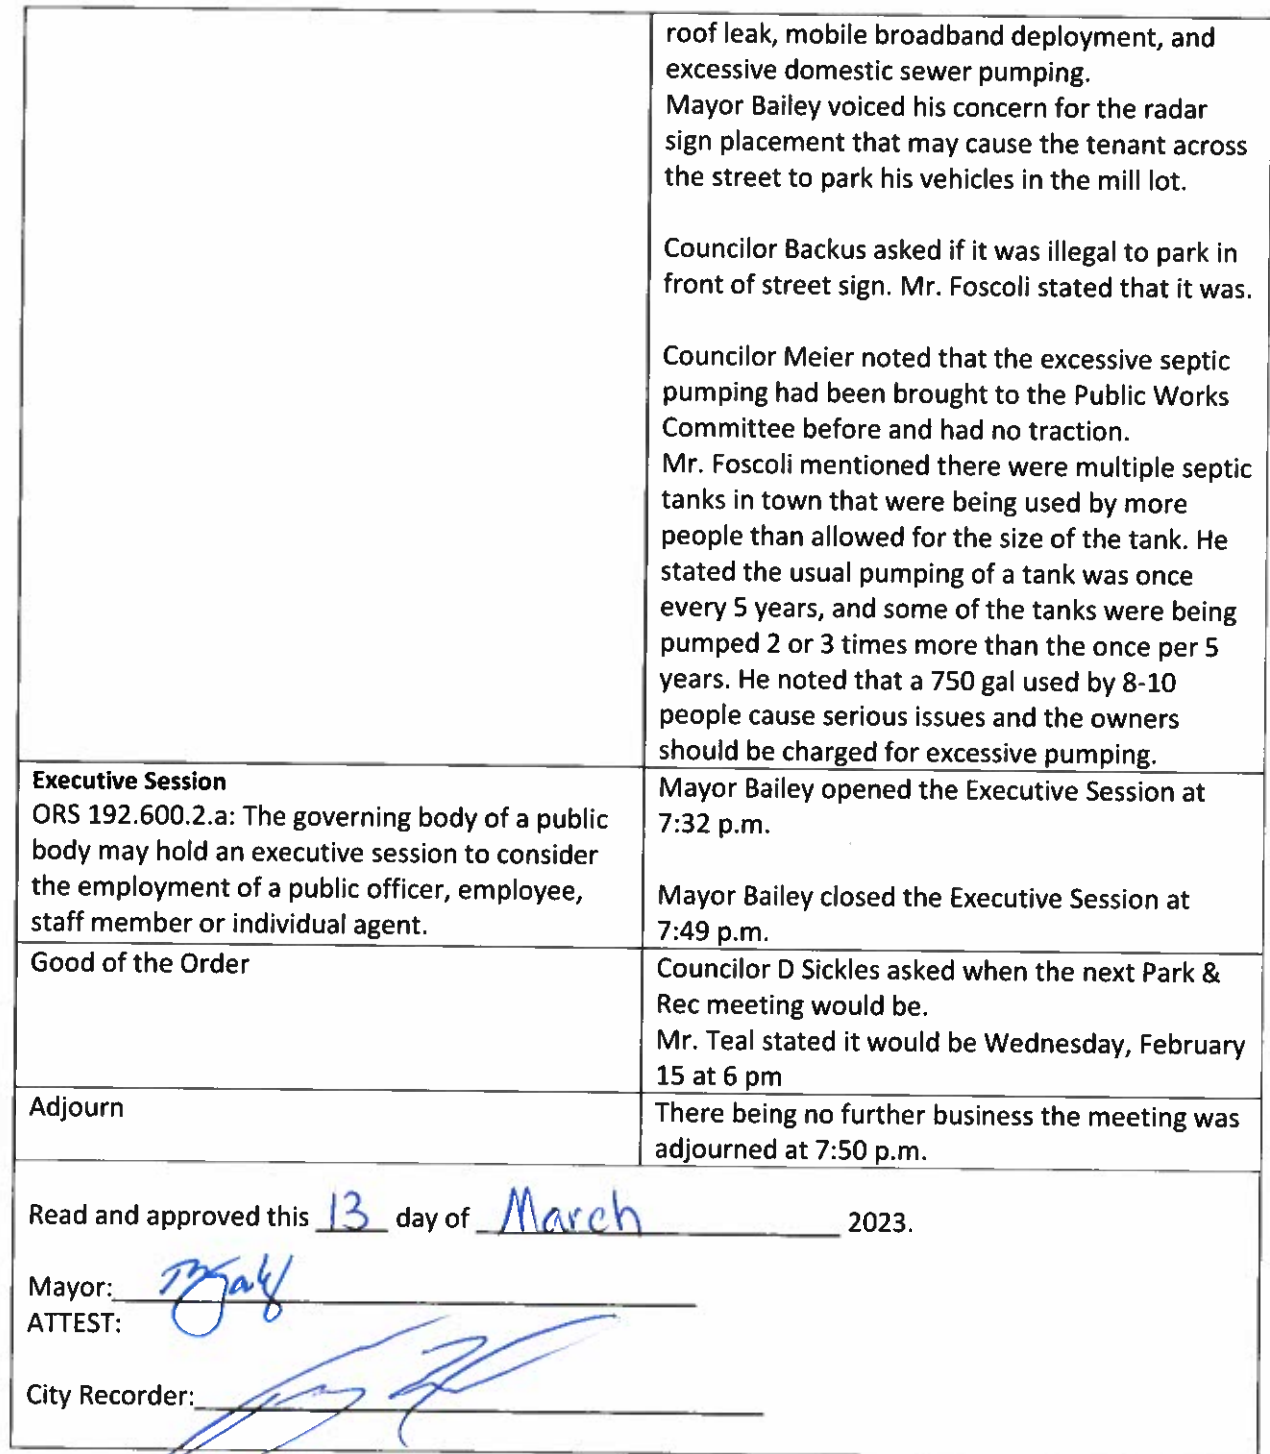 roof leak, mobile broadband deployment, and
excessive domestic sewer pumping.
Mayor Bailey voiced his concern for the radar
sign placement that may cause the tenant across
the street to park his vehicles in the mill lot.
Councilor Backus asked if it was illegal to park in
front of street sign. Mr. Foscoli stated that it was.
Councilor Meier noted that the excessive septic
pumping had been brought to the Public Works
Committee before and had no traction.
Mr. Foscoli mentioned there were multiple septic
tanks in town that were being used by more
people than allowed for the size of the tank. He
stated the usual pumping of a tank was once
every 5 years, and some of the tanks were being
pumped 2 or 3 times more than the once per 5
years. He noted that a 750 gal used by 8-10
people cause serious issues and the owners
should be charged for excessive pumping.
Executive Session
ORS 192.600.2.a: The governing body of a public
body may hold an executive session to consider
the employment of a public officer, employee,
staff member or individual agent.
Mayor Bailey opened the Executive Session at
7:32 p.m.
Mayor Bailey closed the Executive Session at
7:49 p.m.
Good of the Order
Councilor D Sickles asked when the next Park &
Rec meeting would be.
Mr. Teal stated it would be Wednesday, February
15 at 6 pm
Adjourn
There being no further business the meeting was
adjourned at 7:50 p.m.
Read and approved this 13 day of March 2023.
Mayor:
ATTEST:
City Recorder: